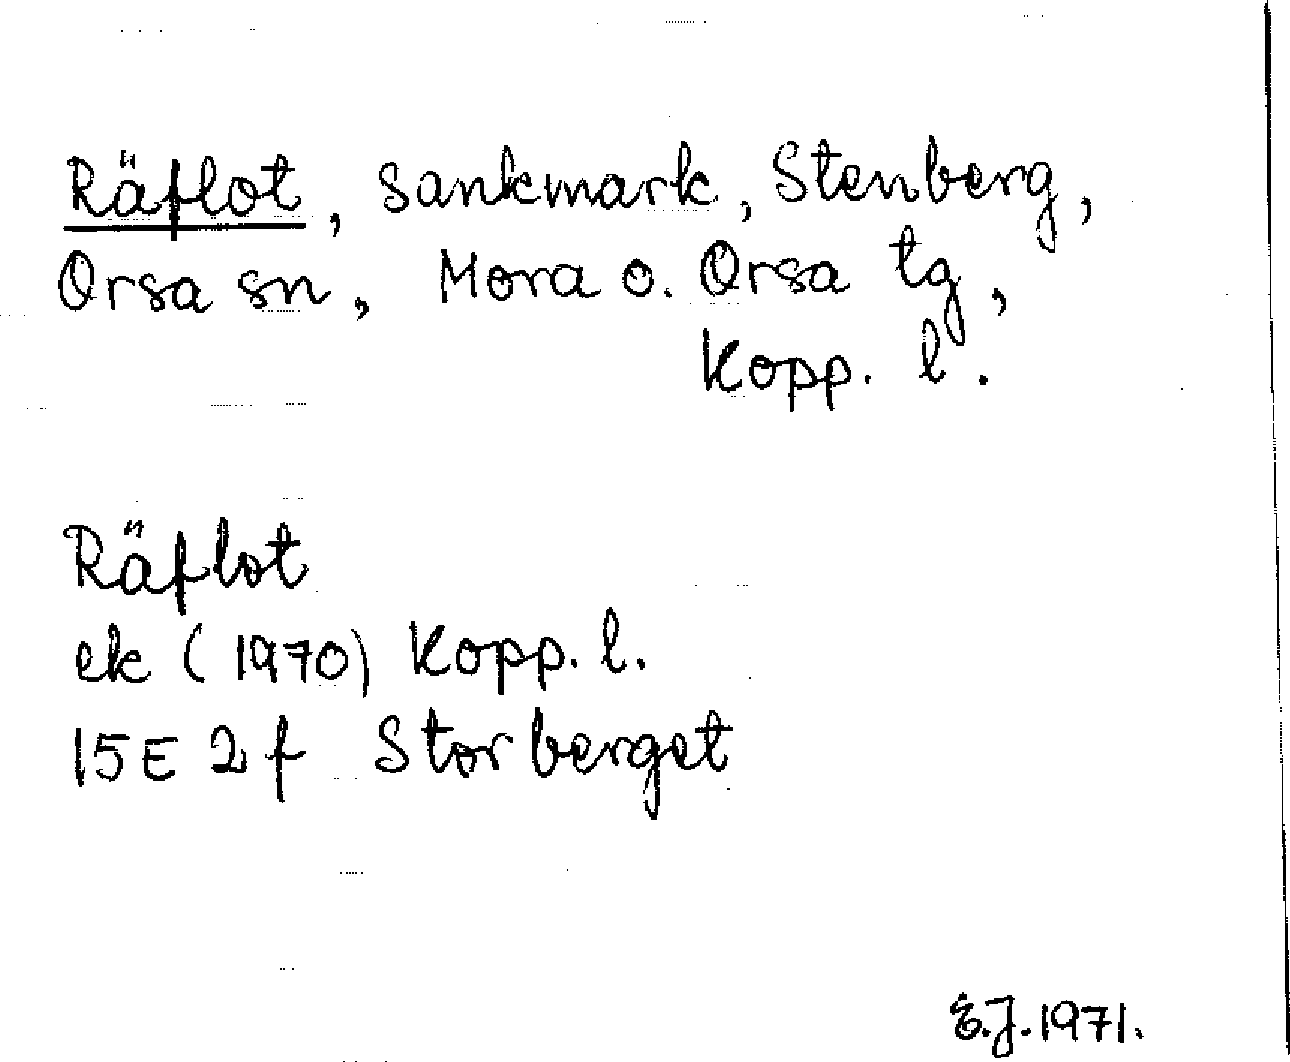 Räflot, sankmark, Stenberg,
Orsa sn, Mora o. Orsa tg,
Kopp. l.
Räflot
ek (1970) Kopp. l.
15E 2f Storberget
E.J. 1971.